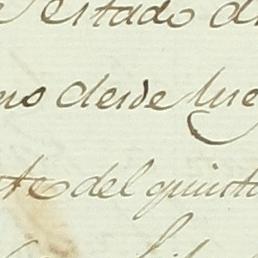 estado d
no desde lue
te del quinto